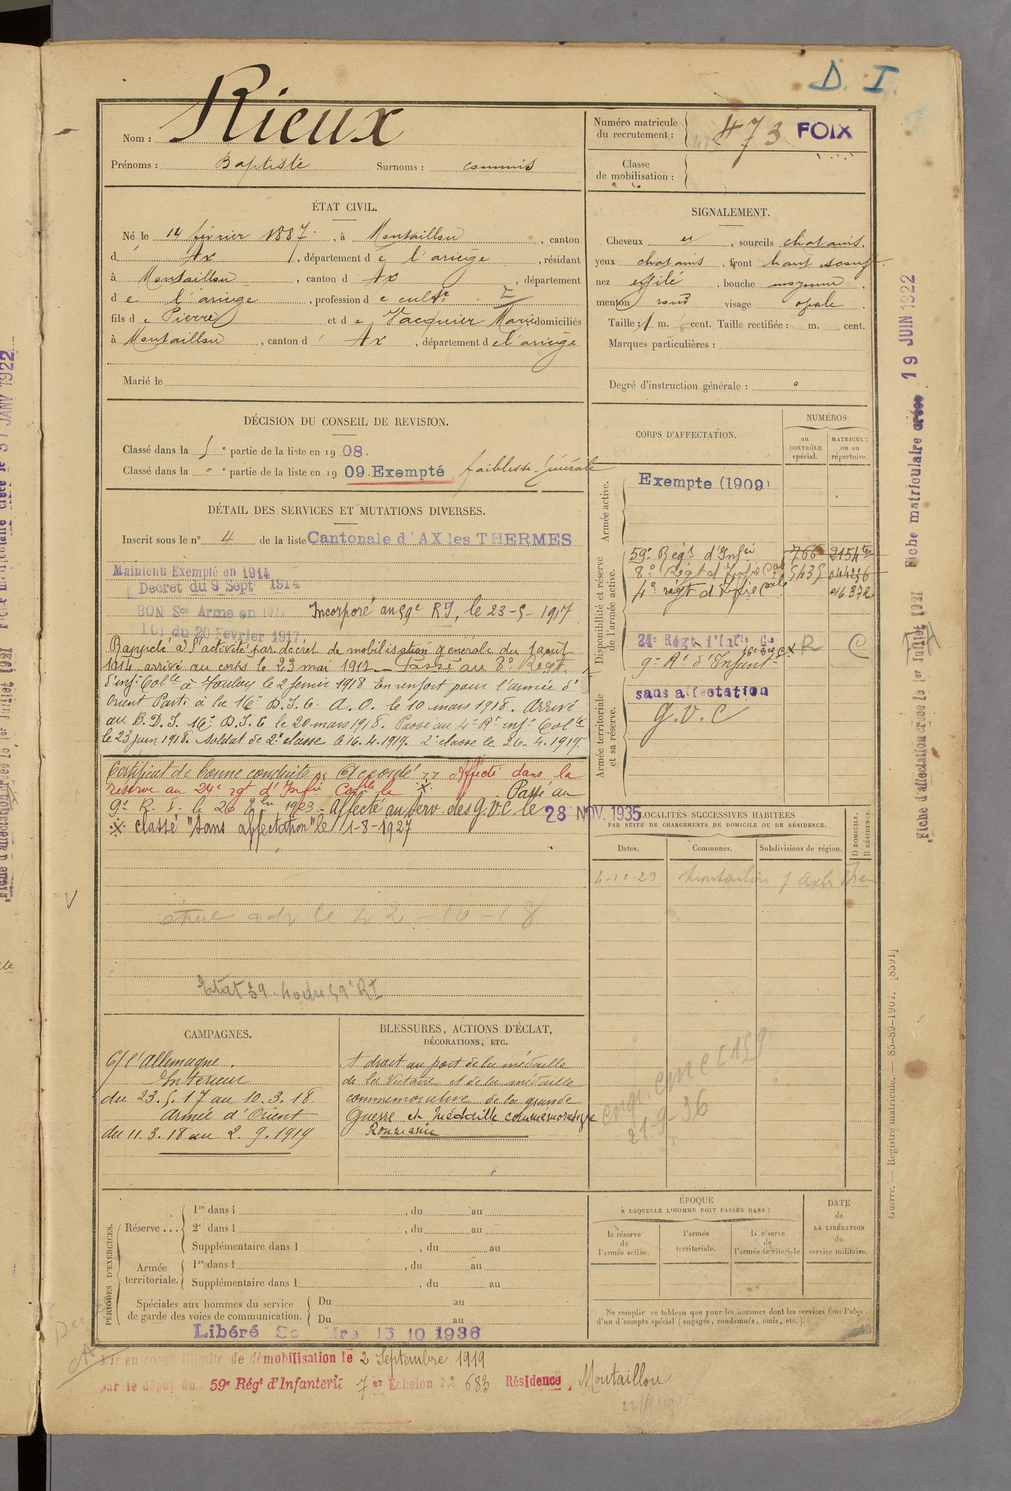 D. I.
Nom : Rieux
Prénoms : Baptiste Surnoms : commis
Numéro matricule du recrutement : 473 FOIX
Classe de mobilisation :
ÉTAT CIVIL.
Né le 14 février 1887, à Montaillou, canton
d Ax, département d e l'ariège, résidant
à Montaillou, canton d Ax, département
d e l'ariège, profession d e cultr
fils d e Pierre et d e Jacquier Marie domiciliés
à Montaillou, canton d Ax, département d e l'ariège
Marié le
SIGNALEMENT.
Cheveux et, sourcils chatains,
yeux chatains, front haut
nez effilé, bouche moyenne
menton rond visage ovale
Taille : 1 m. cent. Taille rectifiée : m. cent.
Marques particulières :
Degré d'instruction générale :
DÉCISION DU CONSEIL DE REVISION.
Classé dans la 5e partie de la liste en 1908.
Classé dans la " " partie de la liste en 1909. Exempté faiblesse générale
DÉTAIL DES SERVICES ET MUTATIONS DIVERSES.
Inscrit sous le n° 4 de la liste Cantonale d'AX les THERMES
Maintenu Exempté en 1914
Decret du 9 Sept 1914
BON Sce Armé en 1917
Loi du 20 Février 1917
Incorporé au 59e RI, le 23-5-1917
Rappelé à l'activité par décret de mobilisation générale du 1 aout
1914 arrivé au corps le 23 mai 1917. Passé au 8e Régt
d'Infie Colle à Toulon le 2 février 1918. En renfort pour l'armée d'
Orient Parti à la 16e D.I.C. A.O. le 10 mars 1918. Arrivé
au B.D.I. 16e D.I.C le 20 mars 1918. Passé au 4e Rt inf. Colle
le 23 juin 1918. Soldat de 2e classe le 16.4.1919. 1e classe le 26.4.1919
Certificat de bonne conduite Accordé. Affecté dans la
réserve au 24e rgt d'Infie Colle le Passé au
9e R.I. le 1923. Affecté au serv. des g.v.c. le 28 NOV. 1935
classé "sans affectation" le 1-8-1927
le 22-10-18
Etat 59 du 59e RI
CORPS D'AFFECTATION.
NUMÉROS
au CONTRÔLE spécial.
MATRICULE ou au répertoire.
Armée active.
Exempté (1909)
Disponibilité et réserve de l'armée active.
59e Régt d'Infie 766
8e Régt d'Infie Cole 5435
4e régt d'Infie Cole
24e Régt d'Infie Ce R C
9e Rt d'Infant
Armée territoriale et sa réserve.
sans affectation
g.v.c
LOCALITÉS SUCCESSIVES HABITÉES
PAR SUITE DE CHANGEMENTS DE DOMICILE OU DE RÉSIDENCE.
Dates. Communes. Subdivisions de région. D DOMICILE. R RÉSIDENCE.
Montaillou
CAMPAGNES.
C/ l'Allemagne.
Intérieur
du 23.5.17 au 10.3.18
Armée d'Orient
du 11.3.18 au 2.9.1919
BLESSURES, ACTIONS D'ÉCLAT,
DÉCORATIONS, ETC.
A droit au port de la médaille
de la Victoire et de la médaille
commémorative de la grande
Guerre et Médaille commémorative
Roumanie
PÉRIODES D'EXERCICES.
Réserve ...
1re dans l , du au
2e dans l , du au
Supplémentaire dans l , du au
Armée territoriale.
1re dans l , du au
Supplémentaire dans l , du au
Spéciales aux hommes du service de garde des voies de communication.
Du au
Du au
Libéré Sce Mre 15 10 1936
ÉPOQUE
À LAQUELLE L'HOMME DOIT PASSER DANS :
la réserve de l'armée active.
l'armée territoriale.
la réserve de l'armée territoriale
DATE de LA LIBÉRATION du service militaire.
Ne remplir ce tableau que pour les hommes dont les services font l'objet
d'un décompte spécial (engagés, condamnés, omis, etc.).
Mis en congé illimité de démobilisation le 2 Septembre 1919
par le dépôt du 59e Régt d'Infanterie 7e Echelon N° 683 Résidence, Montaillou
Fiche matriculaire créée 19 JUIN 1922
Fiche d'affectation créée le 1er Juillet 1921
Guerre. — Registre matricule. — 85-89-1907. [8391]